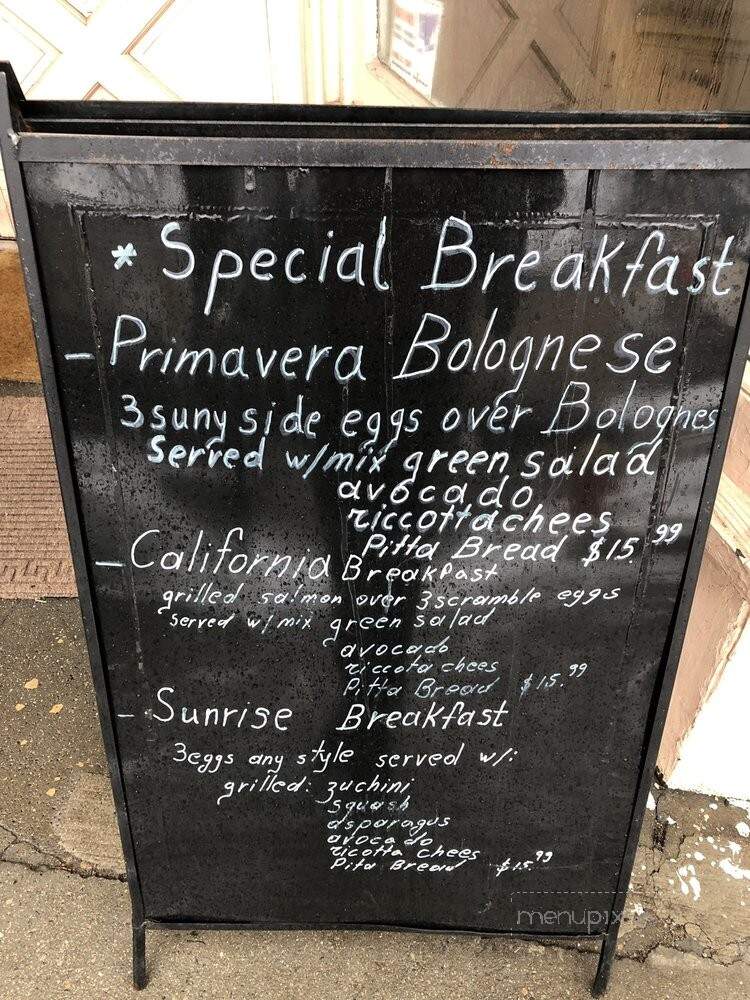 * Special Breakfast
- Primavera Bolognese
3 suny side eggs over Bolognes
Served w/mix green salad
avocado
riccotta chees
Pitta Bread $15.99
- California Breakfast
grilled salmon over 3 scramble eggs
Served w/mix green salad
avocado
riccota chees
Pitta Bread $15.99
- Sunrise Breakfast
3 eggs any style served w/:
grilled: zuchini
squash
asparagus
avocado
ricotta chees
Pita Bread $15.99
menupix